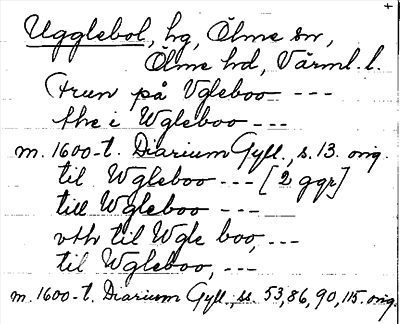 +
Ugglebol, hg, Ölme sn,
Ölme hd, Värml. l.
Frun på Vgleboo ---
the i Wgleboo ---
m. 1600-t. Diarium Gyll., s. 13. orig.
til Wgleboo --- [2 ggr]
till Wgleboo ---
vth til Wgle boo, ---
til Wgleboo, ---
m. 1600-t. Diarium Gyll., ss. 53, 86, 90, 115. orig.